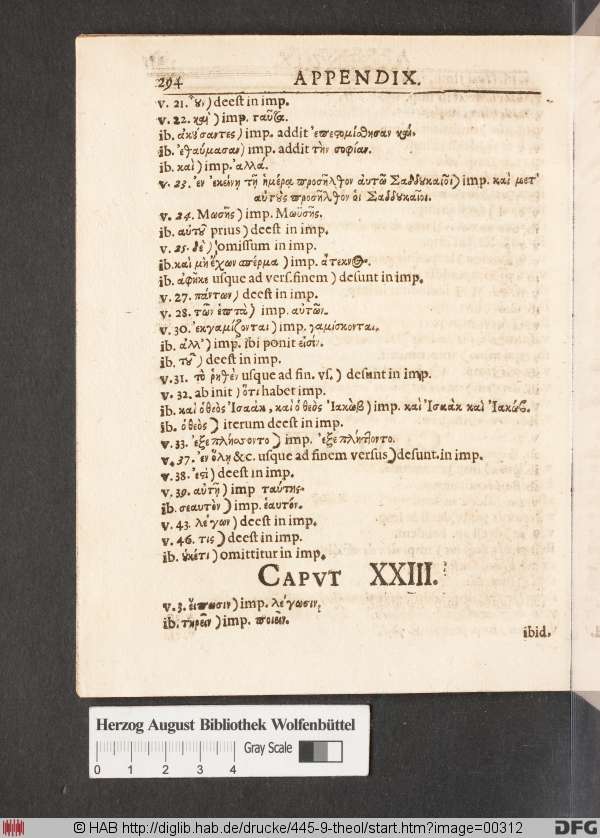 294 APPENDIX.
v. 21. ȣ͂) deest in imp.
v. 22. καὶ) imp. ταῦτα.
ib. ἀκȣ́σαντες) imp. addit ἐπεστομίσθησαν καὶ.
ib. ἐθαύμασαν) imp. addit τὴν σοφίαν.
ib. καὶ) imp. ἀλλά.
v. 23. ἐν ἐκείνη τῇ ἡμέρα προσῆλθον ἀυτῶ Σαδδυκαῖοι) imp. καὶ μετ'
αὐτȣ̀ς προσῆλθον ὁι Σαδδυκαῖοι.
v. 24. Μωσῆς) imp. Μωϋσῆς.
ib. αὐτȣ͂ prius) deest in imp.
v. 25. δὲ) omissum in imp.
ib. καὶ μὴ ἔχων σπέρμα) imp. ἄτεκνος.
ib. ἀφῆκε usque ad vers. finem) desunt in imp.
v. 27. πάντων) deest in imp.
v. 28. τῶν ἑπτὰ) imp. αὐτῶν.
v. 30. ἐκγαμίζονται) imp. γαμίσκονται.
ib. ἀλλ') imp. ibi ponit εἰσίν.
ib. τȣ͂) deest in imp.
v. 31. τὸ ῥηθὲν usque ad fin. vs.) desunt in imp.
v. 32. ab init) ὅτι habet imp.
ib. καὶ ὁ θεὸς Ἰσαὰκ, καὶ ὁ θεὸς Ἰακὼβ) imp. καὶ Ἰσαὰκ καὶ Ἰακώβ.
ib. ὁ θεὸς) iterum deest in imp.
v. 33. ἐξεπλήσσοντο) imp. ἐξεπλήττοντο.
v. 37. ἐν ὅλῃ &c. usque ad finem versus) desunt in imp.
v. 38. ἐστὶ) deest in imp.
v. 39. αὐτῇ) imp ταύτης.
ib. σεαυτὸν) imp. ἑαυτόν.
v. 43. λέγων) deest in imp.
v. 46. τις) deest in imp.
ib. ȣ̓κέτι) omittitur in imp.
CAPVT XXIII.
v. 3. ἔιπωσιν) imp. λέγωσιν.
ib. τηρεῖν) imp. ποιεῖν.
ibid.
Herzog August Bibliothek Wolfenbüttel
Gray Scale
0 1 2 3 4
© HAB http://diglib.hab.de/drucke/445-9-theol/start.htm?image=00312
DFG